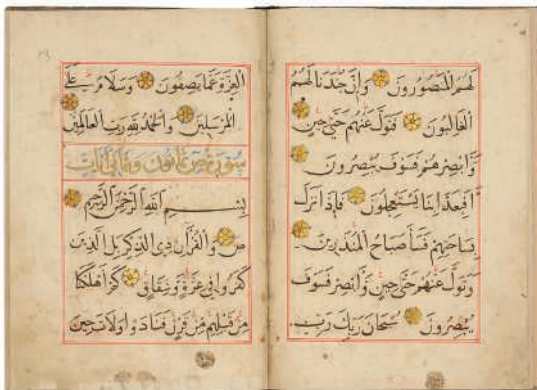 لهم المنصورون وإن جندنا لهم
الغالبون فتول عنهم حتى حين
وأبصرهم فسوف يبصرون
أفبعذابنا يستعجلون فإذا نزل
بساحتهم فساء صباح المنذرين
وتول عنهم حتى حين وأبصر فسوف
يبصرون سبحان ربك رب
العزة عما يصفون وسلام على
المرسلين والحمد لله رب العالمين
سورة ص ثمانون وثماني آيات
بسم الله الرحمن الرحيم
ص والقرآن ذي الذكر بل الذين
كفروا في عزة وشقاق كم أهلكنا
من قبلهم من قرن فنادوا ولات حين